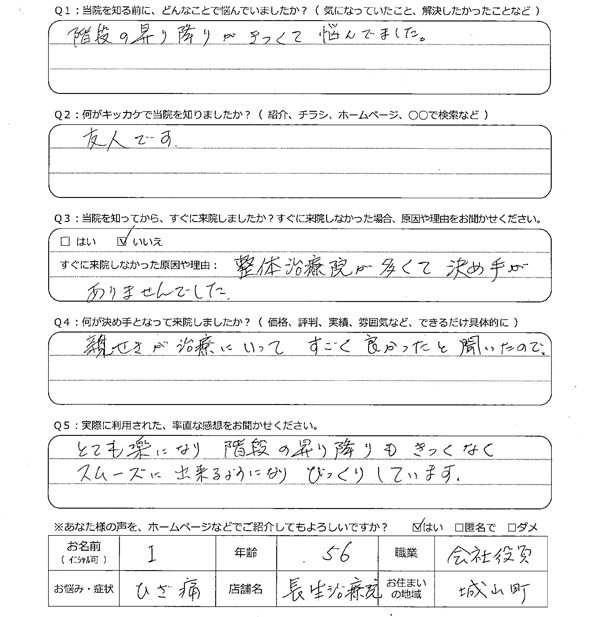 Q1：当院を知る前に、どんなことで悩んでいましたか？（ 気になっていたこと、解決したかったことなど ）
階段の昇り降りがきつくて悩んでました。
Q2：何がキッカケで当院を知りましたか？（ 紹介、チラシ、ホームページ、〇〇で検索など ）
友人です.
Q3：当院を知ってから、すぐに来院しましたか？すぐに来院しなかった場合、原因や理由をお聞かせください。
□ はい ☑ いいえ
すぐに来院しなかった原因や理由： 整体治療院が多くて 決め手が
ありませんでした.
Q4：何が決め手となって来院しましたか？（ 価格、評判、実績、雰囲気など、できるだけ具体的に ）
親せきが治療にいって すごく良かったと聞いたので、
Q5：実際に利用された、率直な感想をお聞かせください。
とても楽になり 階段の昇り降りも きつくなく
スムーズに出来るようになり びっくりしています.
※あなた様の声を、ホームページなどでご紹介してもよろしいですか？ ☑はい □匿名で □ダメ
お名前 （ｲﾆｼｬﾙ可） I 年齢 56 職業 会社役員
お悩み・症状 ひざ痛 店舗名 長生治療院 お住まいの地域 城山町